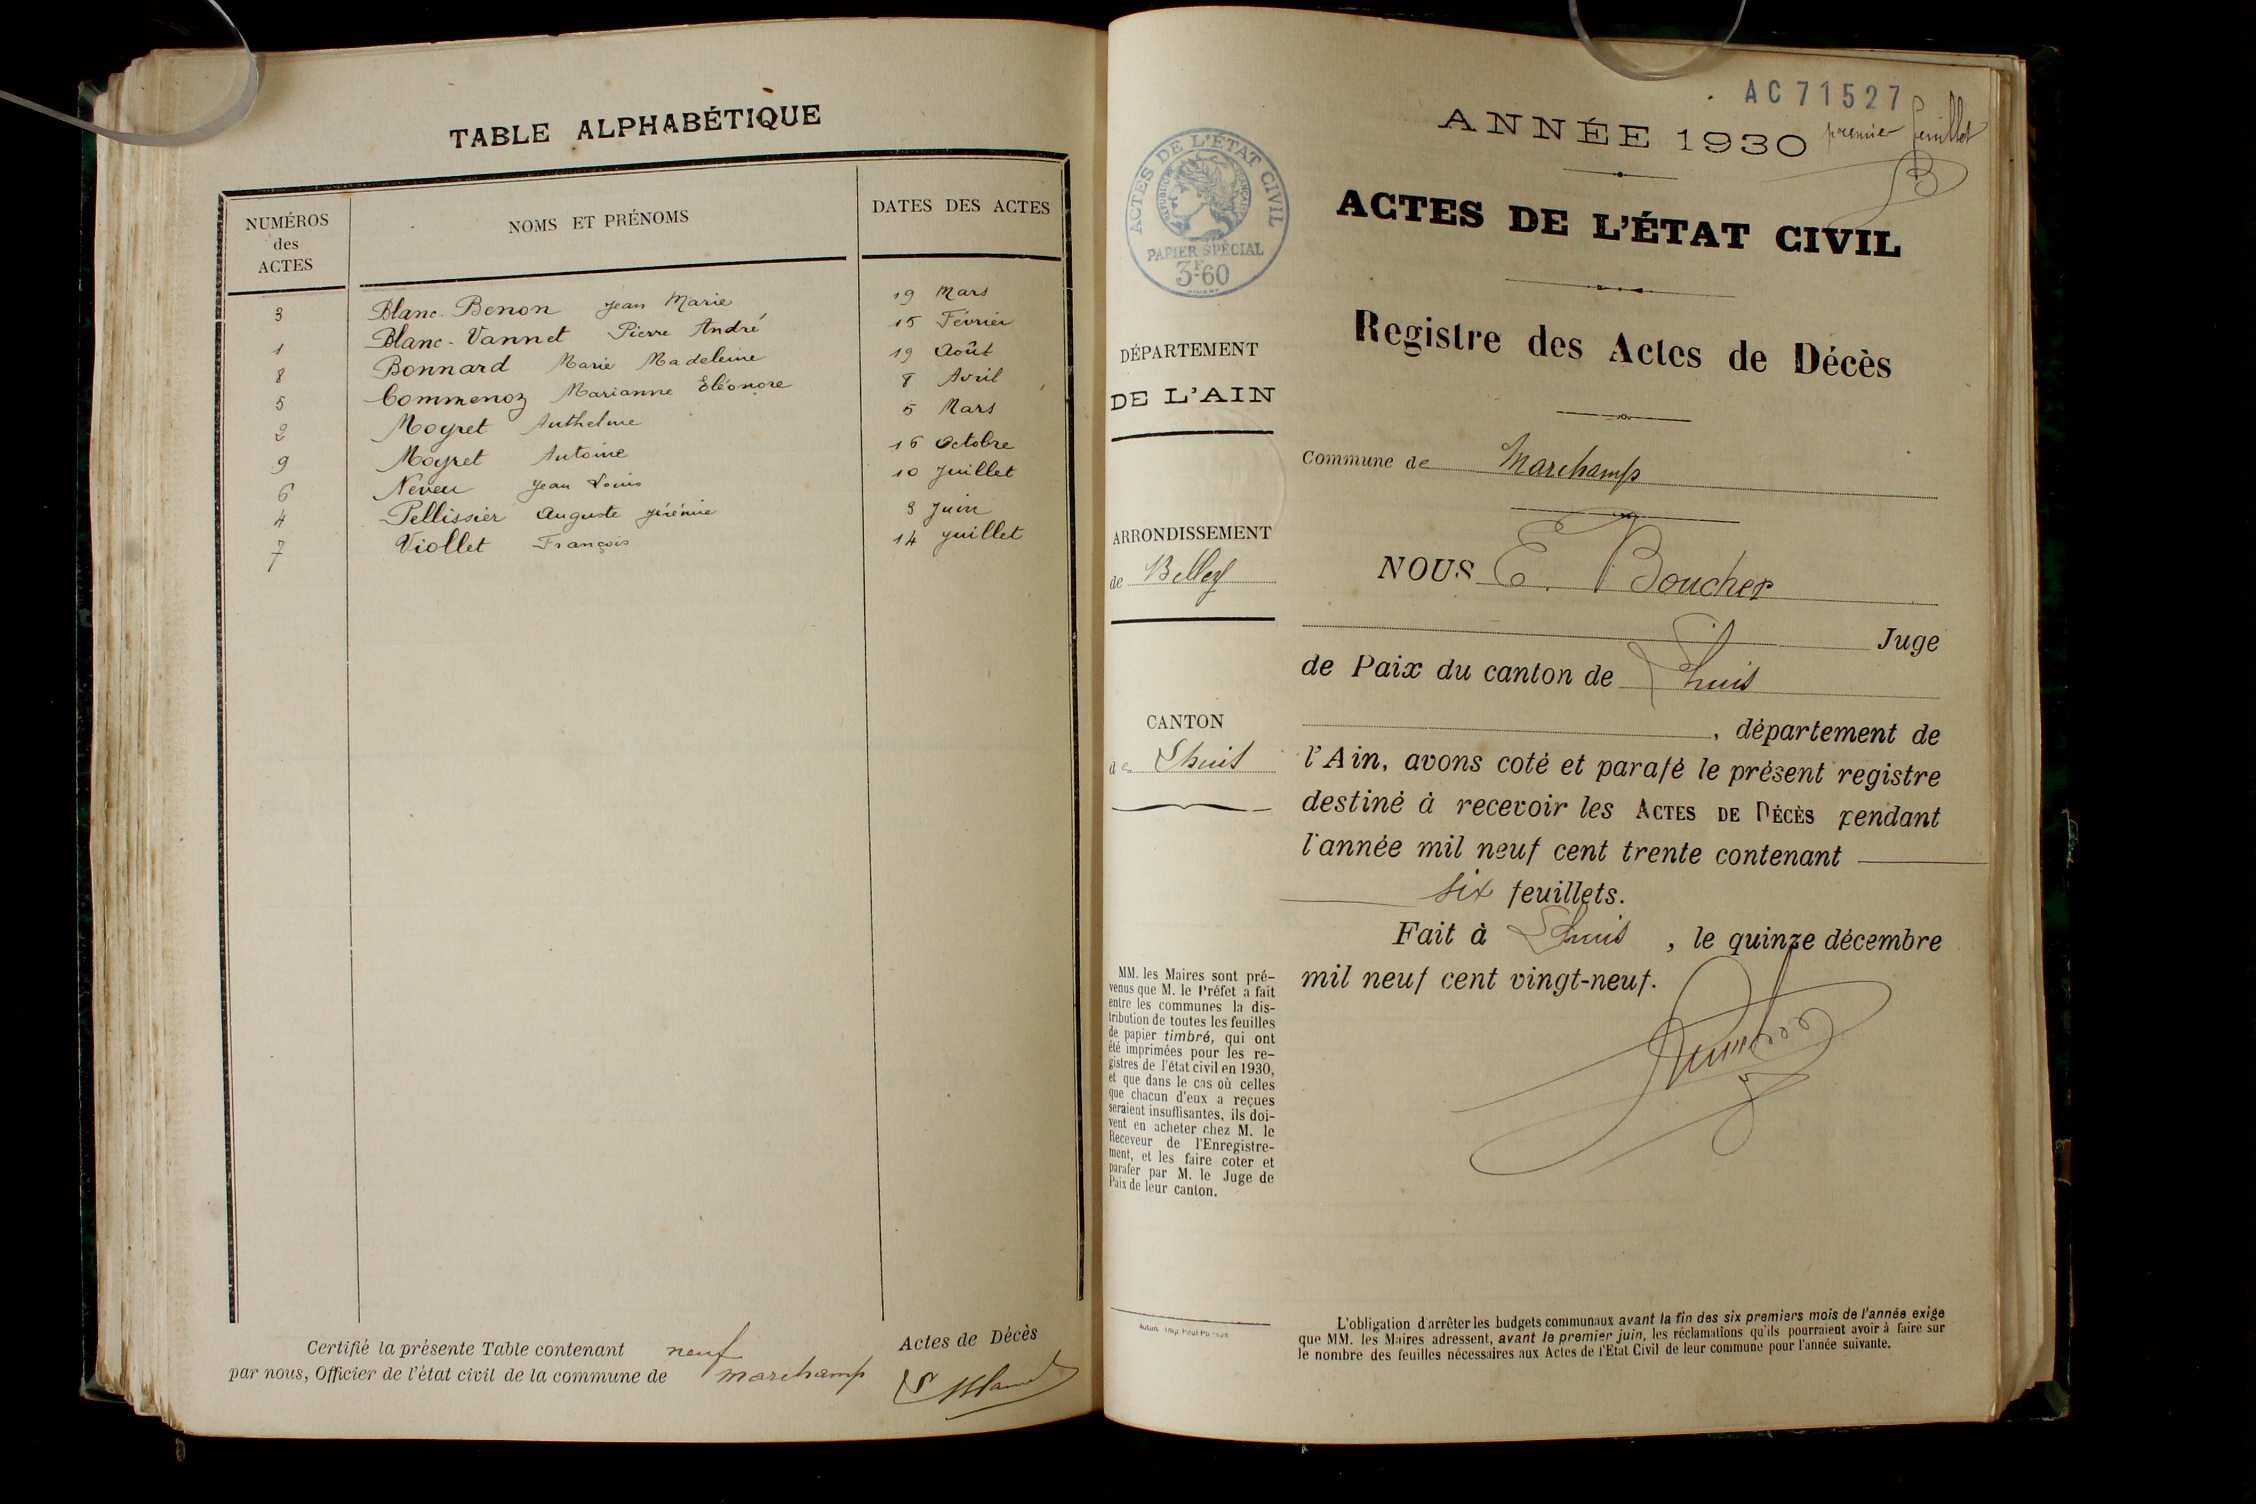 TABLE ALPHABÉTIQUE
NUMÉROS
des
ACTES
NOMS ET PRÉNOMS
DATES DES ACTES
3 Blanc-Benon Jean Marie 19 Mars
1 Blanc-Vannet Pierre André 15 Février
8 Bonnard Marie Madeleine 19 Août
5 Commenoz Marianne Eléonore 8 Avril
2 Moyret Anthelme 5 Mars
9 Moyret Antoine 16 Octobre
6 Neveu Jean Louis 10 Juillet
4 Pellissier Auguste Jérémie 3 Juin
7 Viollet François 14 Juillet
Certifié la présente Table contenant neuf Actes de Décès
par nous, Officier de l'état civil de la commune de Marchamp
AC 71527
premier feuillet
ANNÉE 1930
ACTES DE L'ÉTAT CIVIL
PAPIER SPÉCIAL
3F.60
ACTES DE L'ÉTAT CIVIL
Registre des Actes de Décès
DÉPARTEMENT
DE L'AIN
Commune de Marchamp
ARRONDISSEMENT
de Belley
NOUS E. Boucher
Juge
de Paix du canton de Lhuis
CANTON
de Lhuis
, département de
l'Ain, avons coté et parafé le présent registre
destiné à recevoir les ACTES DE DÉCÈS pendant
l'année mil neuf cent trente contenant
six feuillets.
Fait à Lhuis, le quinze décembre
mil neuf cent vingt-neuf.
MM. les Maires sont pré-
venus que M. le Préfet a fait
entre les communes la dis-
tribution de toutes les feuilles
de papier timbré, qui ont
été imprimées pour les re-
gistres de l'état civil en 1930,
et que dans le cas où celles
que chacun d'eux a reçues
seraient insuffisantes, ils doi-
vent en acheter chez M. le
Receveur de l'Enregistre-
ment, et les faire coter et
parafer par M. le Juge de
Paix de leur canton.
L'obligation d'arrêter les budgets communaux avant la fin des six premiers mois de l'année exige
que MM. les Maires adressent, avant le premier juin, les réclamations qu'ils pourraient avoir à faire sur
le nombre des feuilles nécessaires aux Actes de l'Etat Civil de leur commune pour l'année suivante.